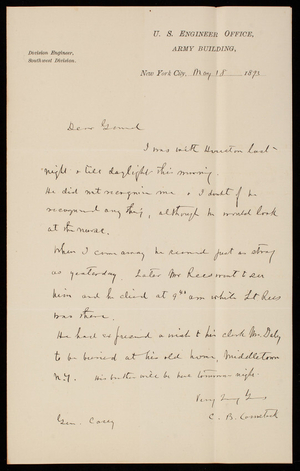 U. S. Engineer Office,
Army Building,
Division Engineer,
Southwest Division.
New York City, May 18 1893
Dear General
I was with Houston last
night & till daylight this morning.
He did not recognize me & I doubt if he
recognized any thing, although he would look
at the nurse.
When I came away he seemed just as strong
as yesterday. Later Mr Rees went to see
him and he died at 9 30 am while Lt Rees
was there.
He had expressed a wish to his clerk Mr. Daly
to be buried at his old home, Middletown
N.Y. His brother will be here tomorrow night.
Very Truly Yours
C. B. Comstock
Gen. Casey